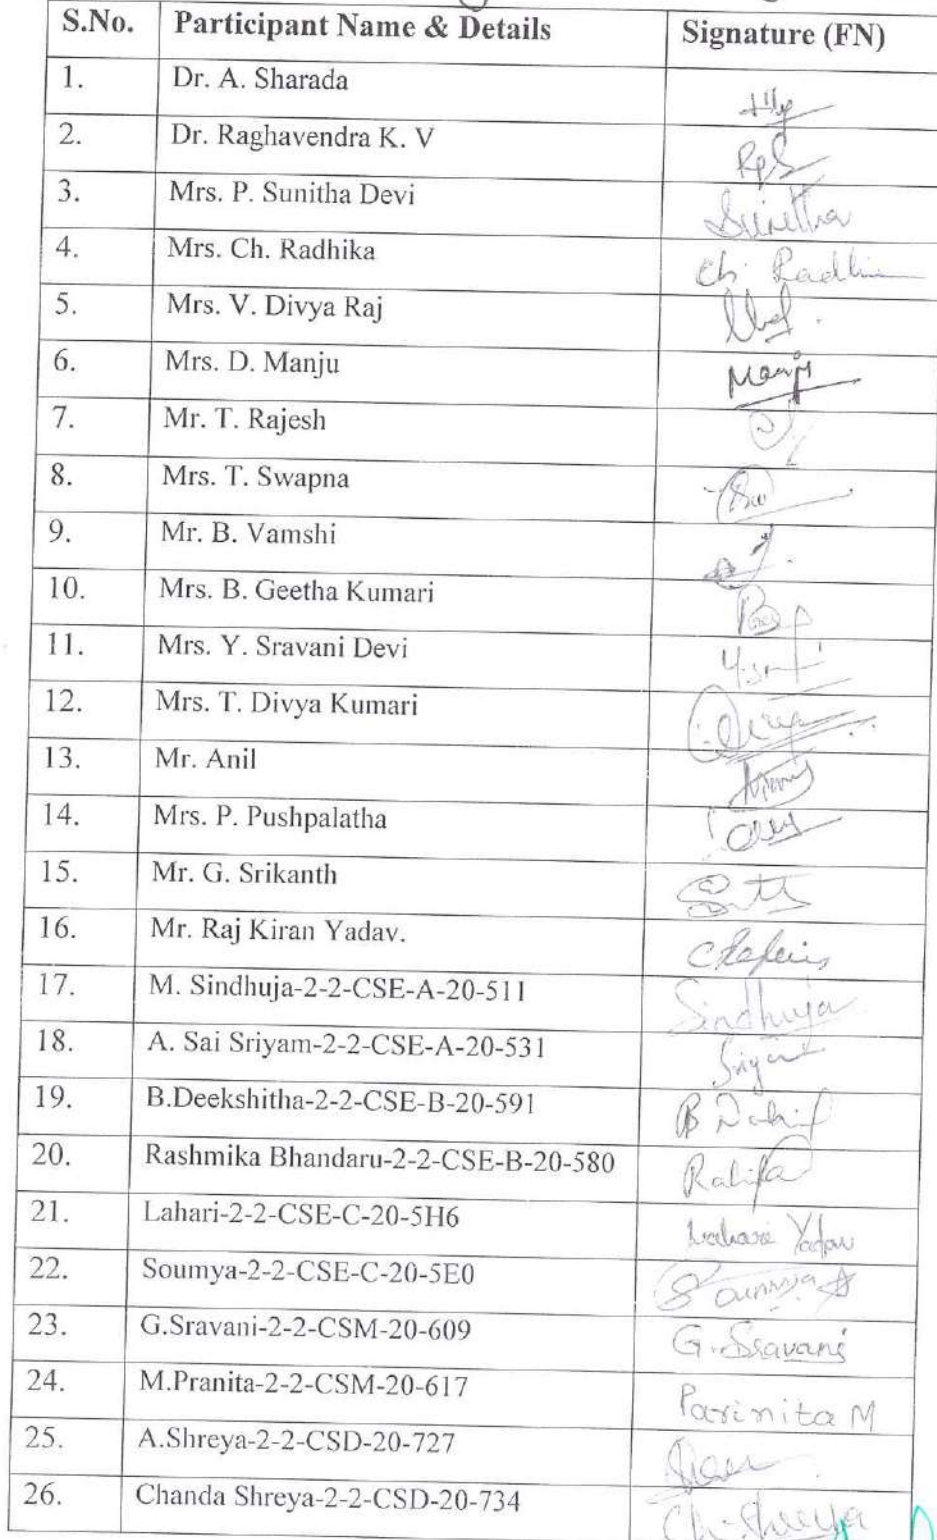 S.No. Participant Name & Details Signature (FN)
1. Dr. A. Sharada
2. Dr. Raghavendra K. V
3. Mrs. P. Sunitha Devi Sunitha
4. Mrs. Ch. Radhika Ch. Radhi
5. Mrs. V. Divya Raj
6. Mrs. D. Manju Manju
7. Mr. T. Rajesh
8. Mrs. T. Swapna
9. Mr. B. Vamshi
10. Mrs. B. Geetha Kumari
11. Mrs. Y. Sravani Devi
12. Mrs. T. Divya Kumari
13. Mr. Anil
14. Mrs. P. Pushpalatha
15. Mr. G. Srikanth
16. Mr. Raj Kiran Yadav.
17. M. Sindhuja-2-2-CSE-A-20-511 Sindhuja
18. A. Sai Sriyam-2-2-CSE-A-20-531
19. B.Deekshitha-2-2-CSE-B-20-591
20. Rashmika Bhandaru-2-2-CSE-B-20-580
21. Lahari-2-2-CSE-C-20-5H6 Lahari Yadav
22. Soumya-2-2-CSE-C-20-5E0 Soumya
23. G.Sravani-2-2-CSM-20-609 G.Sravani
24. M.Pranita-2-2-CSM-20-617 Parinita M
25. A.Shreya-2-2-CSD-20-727
26. Chanda Shreya-2-2-CSD-20-734 Ch.Shreya